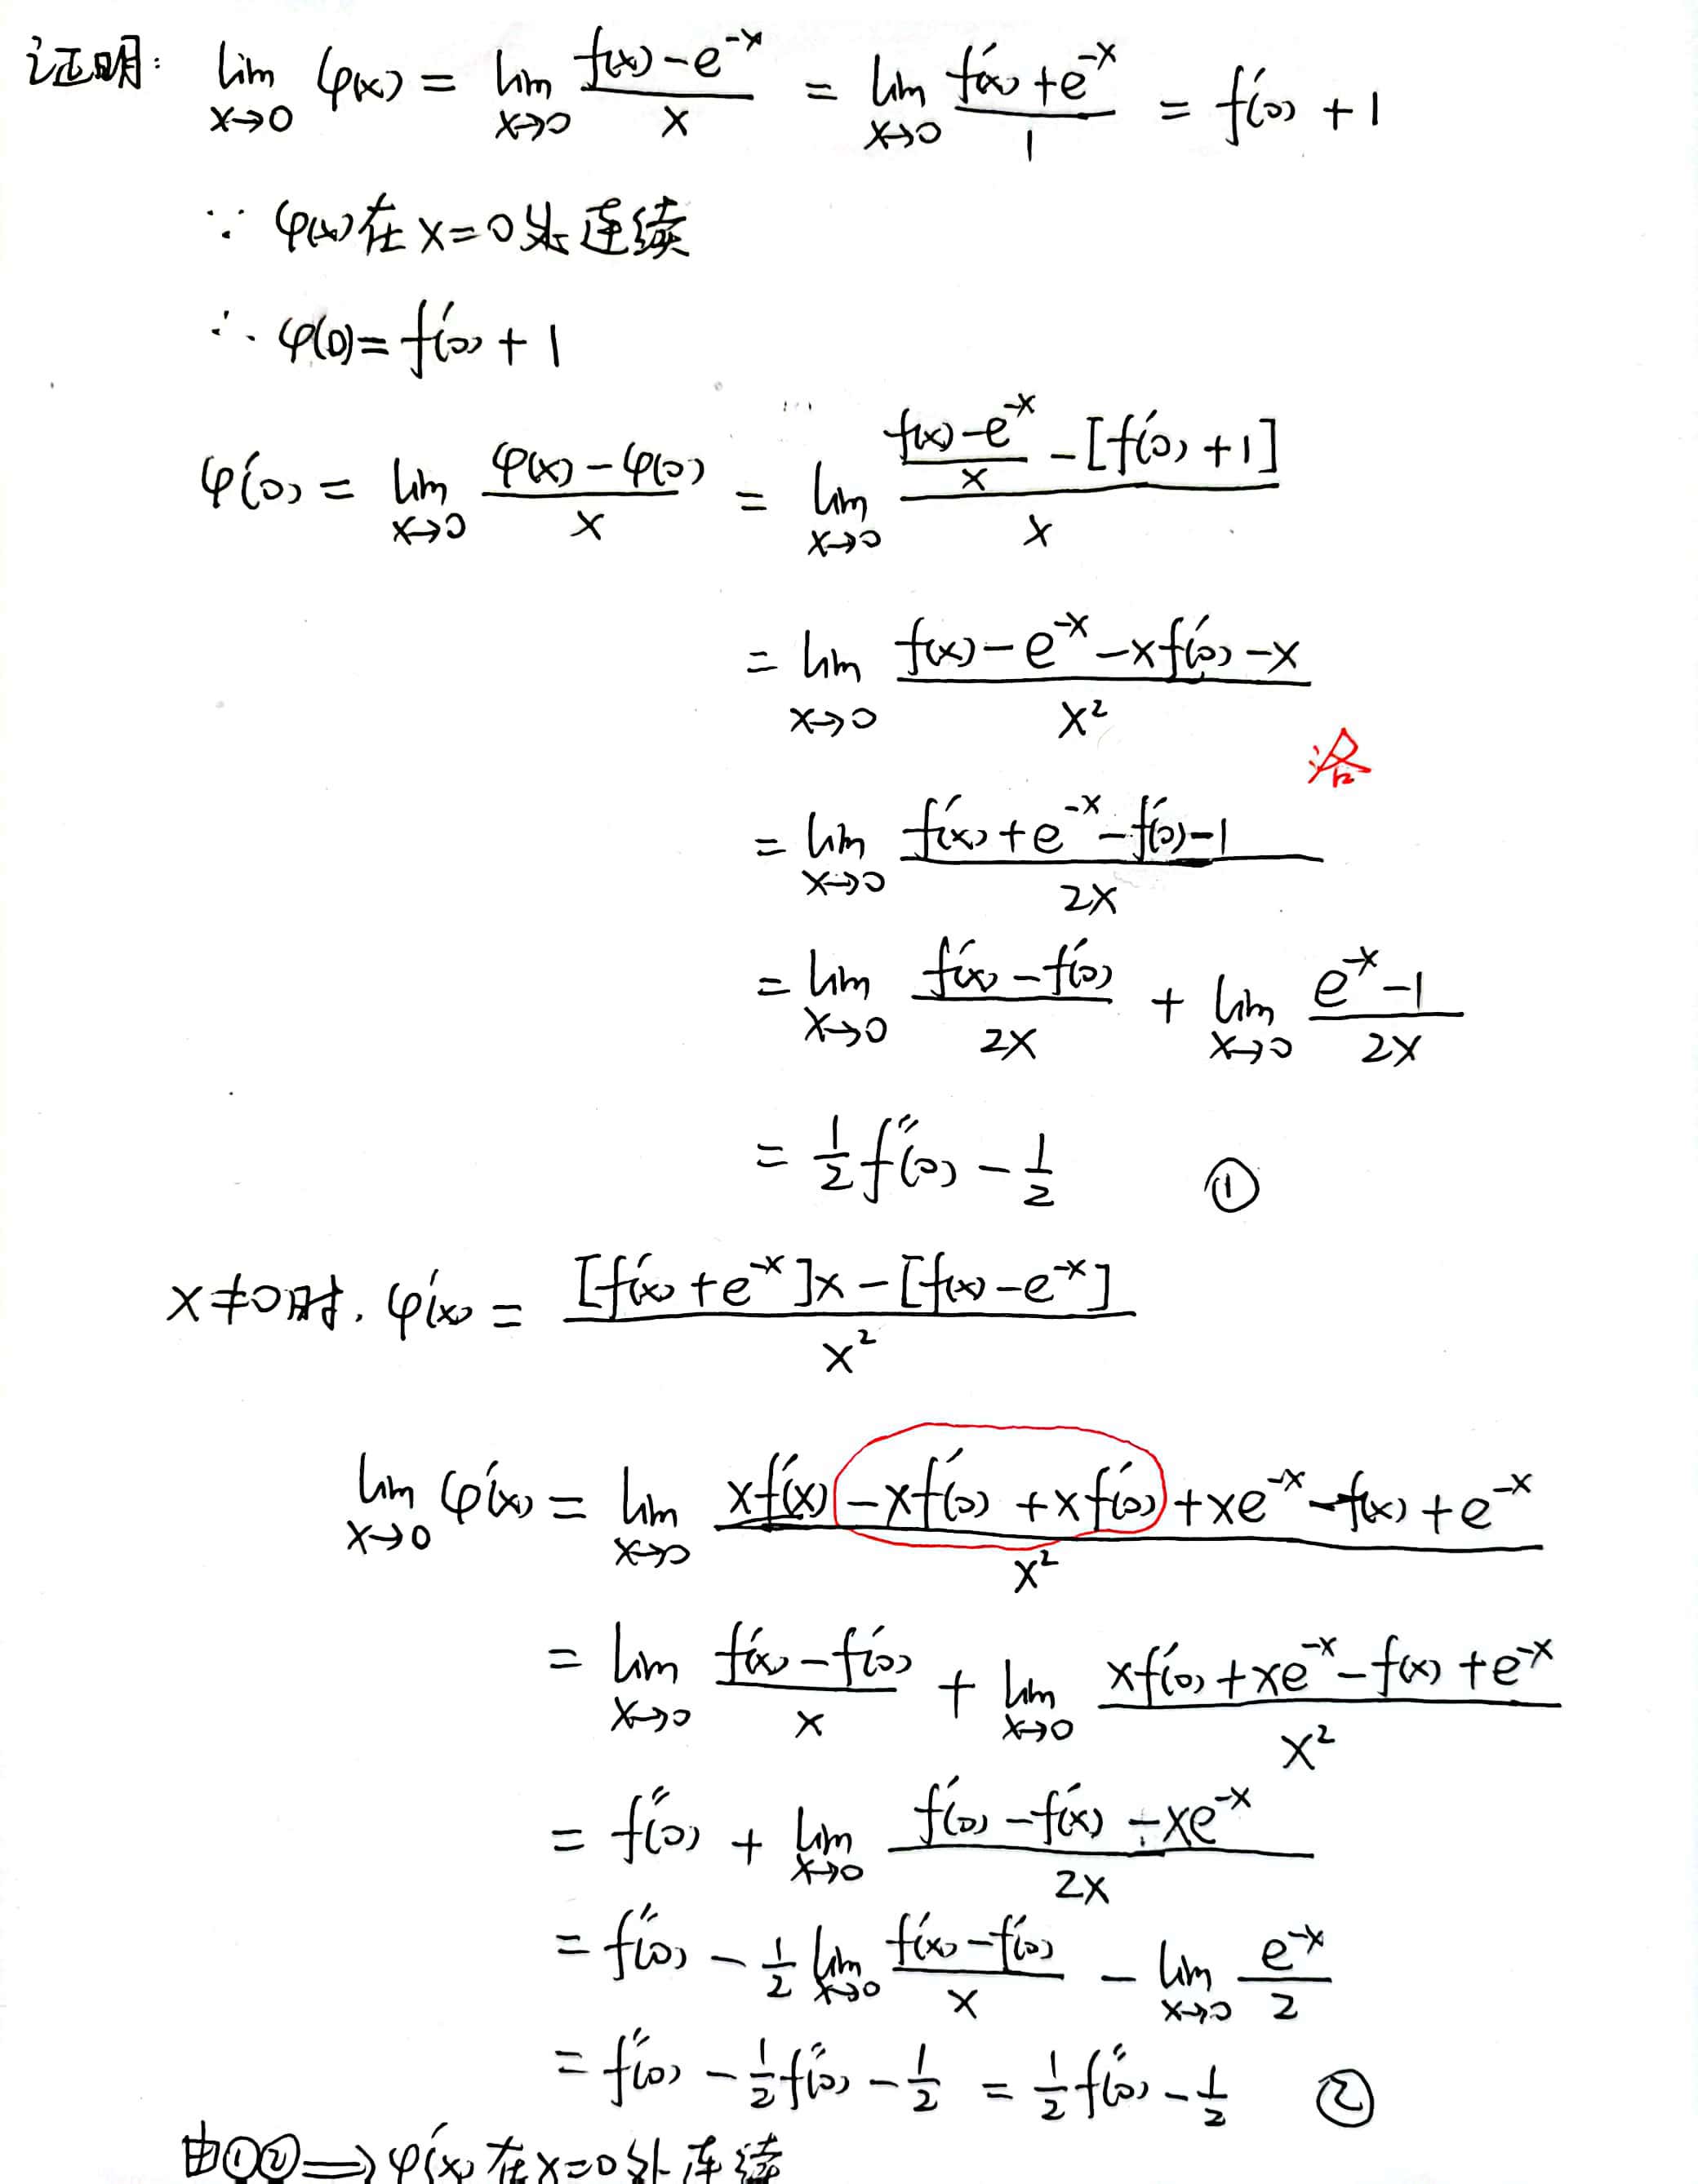 证明: lim_{x→0} φ(x) = lim_{x→0} \frac{f(x)-e^{-x}}{x} = lim_{x→0} \frac{f'(x)+e^{-x}}{1} = f'(0) + 1
∵ φ(x)在x=0处连续
∴ φ(0)= f'(0) + 1
φ'(0) = lim_{x→0} \frac{φ(x)-φ(0)}{x} = lim_{x→0} \frac{\frac{f(x)-e^{-x}}{x} - [f'(0)+1]}{x}
= lim_{x→0} \frac{f(x)-e^{-x}-xf'(0)-x}{x^2}
洛
= lim_{x→0} \frac{f'(x)+e^{-x}-f'(0)-1}{2x}
= lim_{x→0} \frac{f'(x)-f'(0)}{2x} + lim_{x→0} \frac{e^{-x}-1}{2x}
= \frac{1}{2}f''(0) - \frac{1}{2} ①
x≠0时, φ'(x) = \frac{[f'(x)+e^{-x}]x-[f(x)-e^{-x}]}{x^2}
lim_{x→0} φ'(x) = lim_{x→0} \frac{xf'(x)-xf'(0)+xf'(0)+xe^{-x}-f(x)+e^{-x}}{x^2}
= lim_{x→0} \frac{f'(x)-f'(0)}{x} + lim_{x→0} \frac{xf'(0)+xe^{-x}-f(x)+e^{-x}}{x^2}
= f''(0) + lim_{x→0} \frac{f'(0)-f'(x)-xe^{-x}}{2x}
= f''(0) - \frac{1}{2} lim_{x→0} \frac{f'(x)-f'(0)}{x} - lim_{x→0} \frac{e^{-x}}{2}
= f''(0) - \frac{1}{2}f''(0) - \frac{1}{2} = \frac{1}{2}f''(0) - \frac{1}{2} ②
由①②⟹φ'(x)在x=0处连续